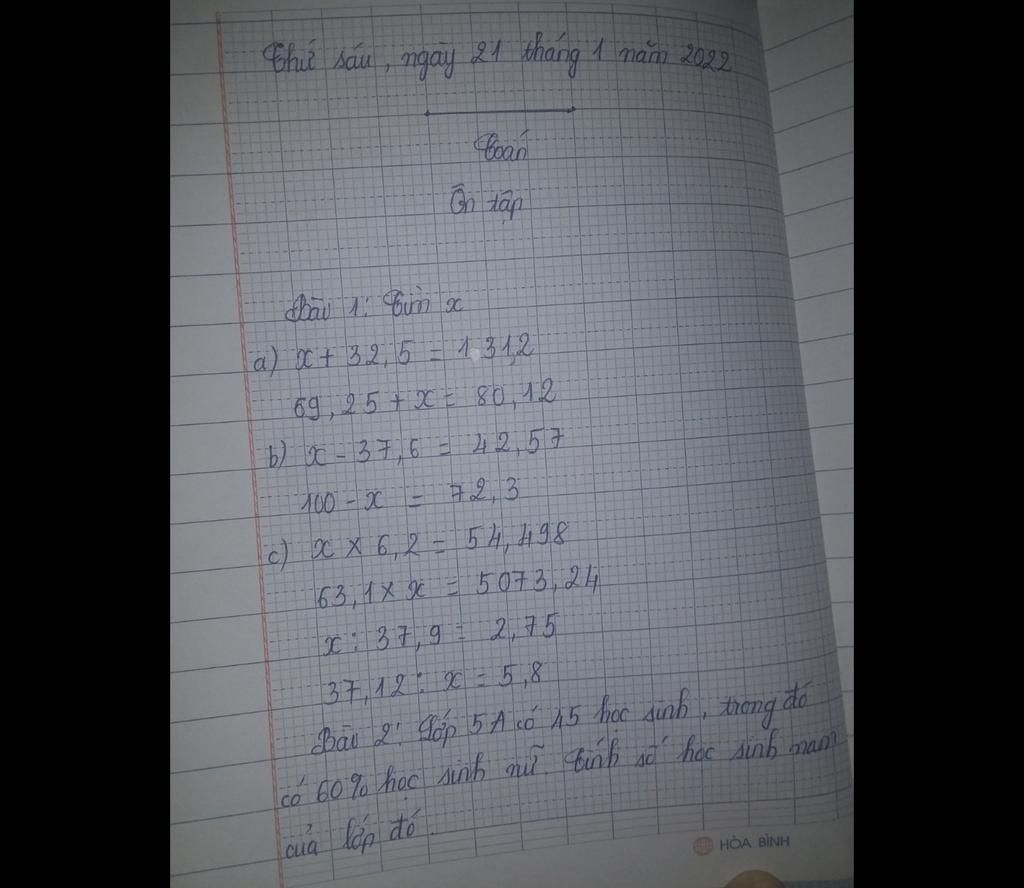 Thứ sáu, ngày 21 tháng 1 năm 2022
Toán
Ôn tập
Bài 1: Tìm x
a) x + 32,5 = 131,2
69,25 + x = 80,12
b) x - 37,6 = 42,57
100 - x = 72,3
c) x × 6,2 = 54,498
63,1 × x = 5073,24
x : 37,9 = 2,75
37,12 : x = 5,8
Bài 2: Lớp 5A có 45 học sinh, trong đó
có 60% học sinh nữ. Tính số học sinh nam
của lớp đó.
HÒA BÌNH